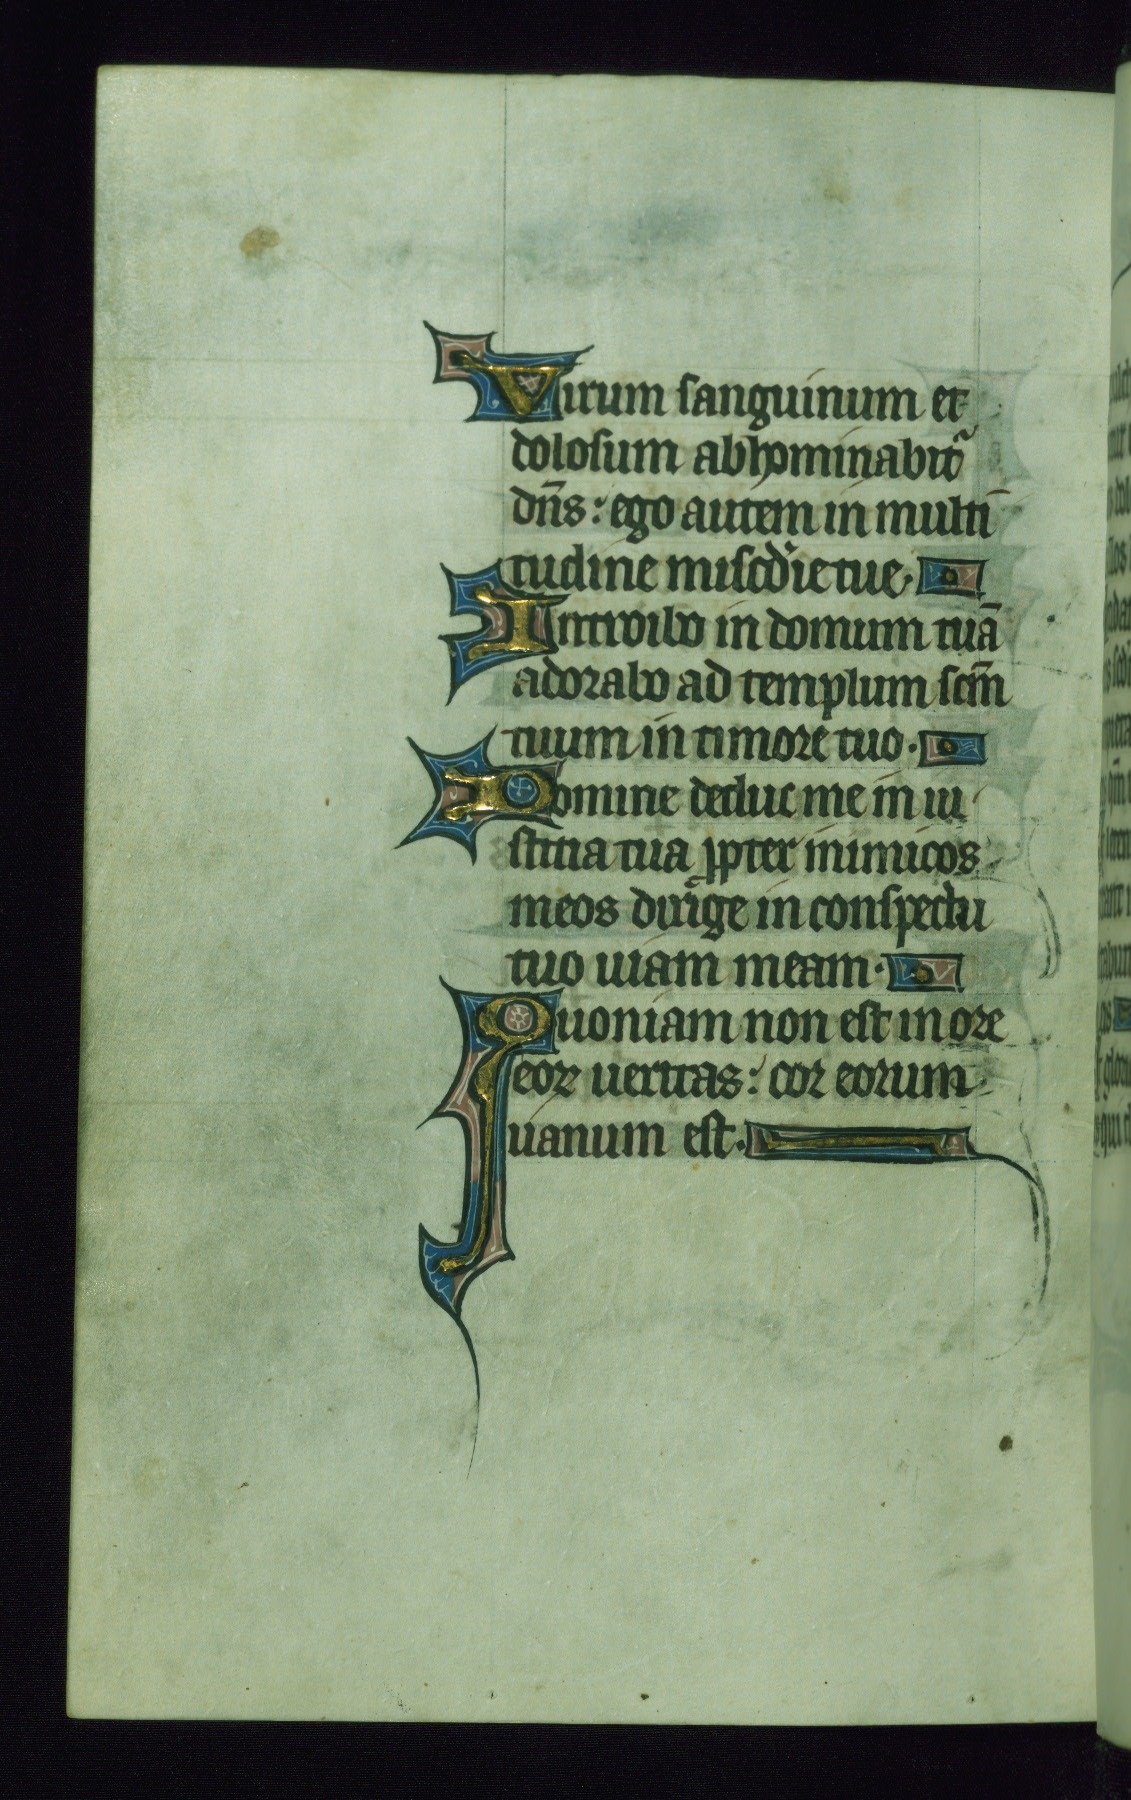 Virum sanguinum et
dolosum abhominabit᷑
dn̄s: ego autem in multi
tudine misc̄die tue.
Introibo in domum tuā
adorabo ad templum scm̄
tuum in timore tuo.
Domine deduc me in iu
stitia tua ꝓpter inimicos
meos dirige in conspectu
tuo uiam meam.
Quoniam non est in ore
eoꝝ ueritas: cor eorum
uanum est.